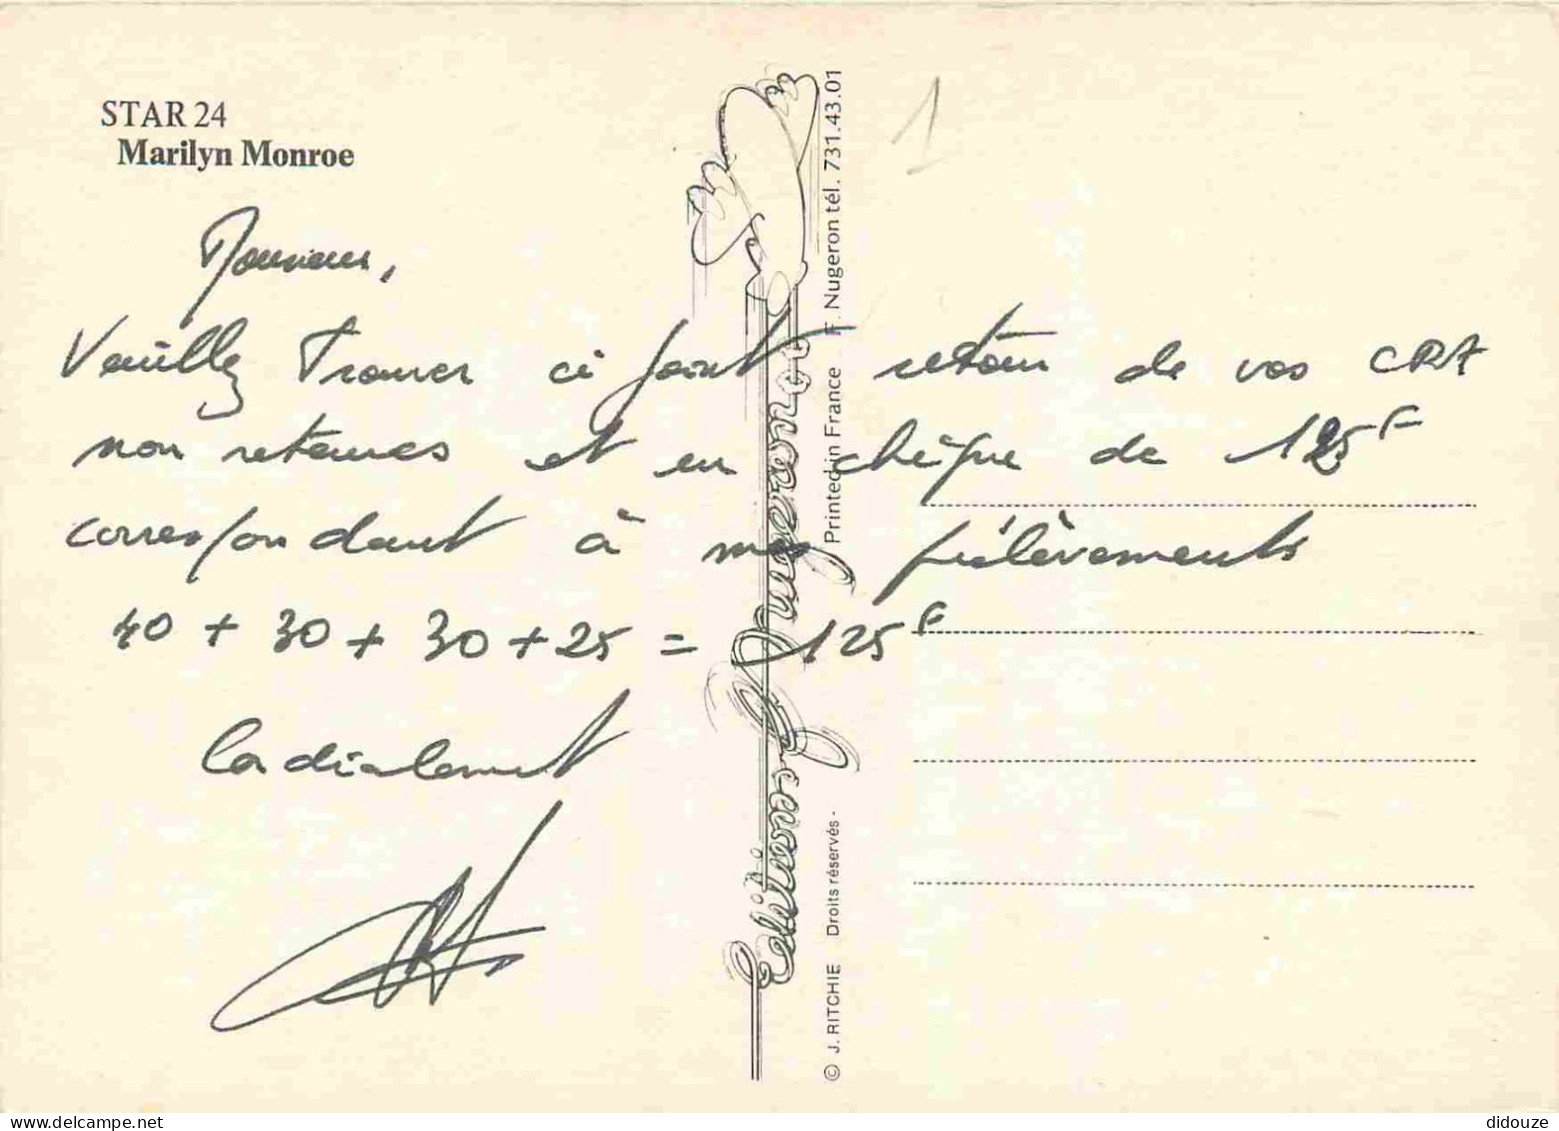 STAR 24
Marilyn Monroe
1
Monsieur,
Veuillez trouver ci joint retour de vos CRA
non retenues et un chèque de 125F
correspondant à mes prélèvements
40 + 30 + 30 + 25 = 125F
Cordialement
Editions Nugeron
© J. RITCHIE Droits réservés - Printed in France F. Nugeron tél. 731.43.01
didouze